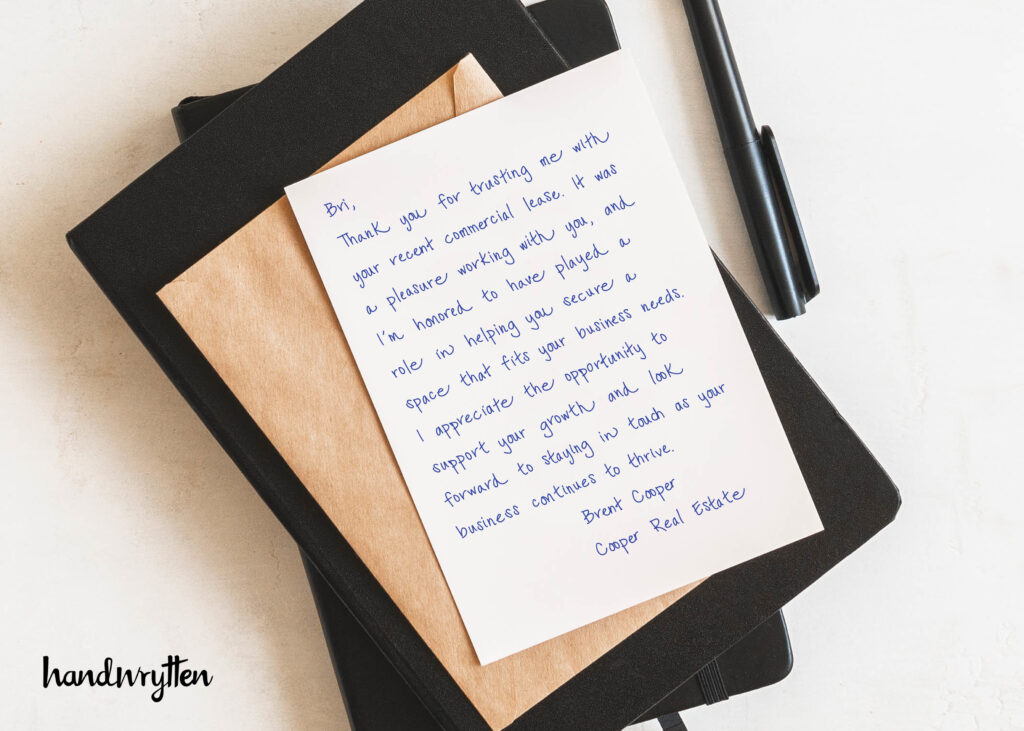 Bri,
Thank you for trusting me with
your recent commercial lease. It was
a pleasure working with you, and
I'm honored to have played a
role in helping you secure a
space that fits your business needs.
I appreciate the opportunity to
support your growth and look
forward to staying in touch as your
business continues to thrive.
Brent Cooper
Cooper Real Estate
handwrytten